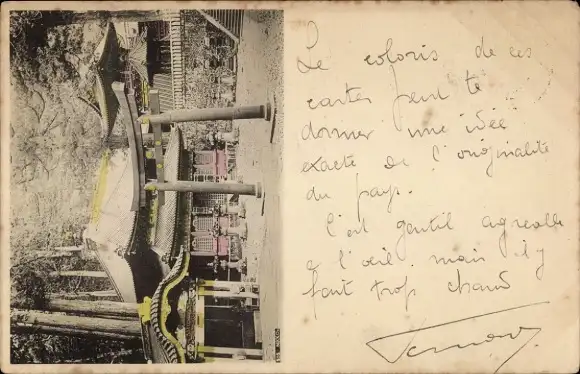 Le coloris de ces
cartes peut te
donner une idée
exacte de l'originalité
du pays.
C'est gentil agréable
à l'œil mais il y
fait trop chaud